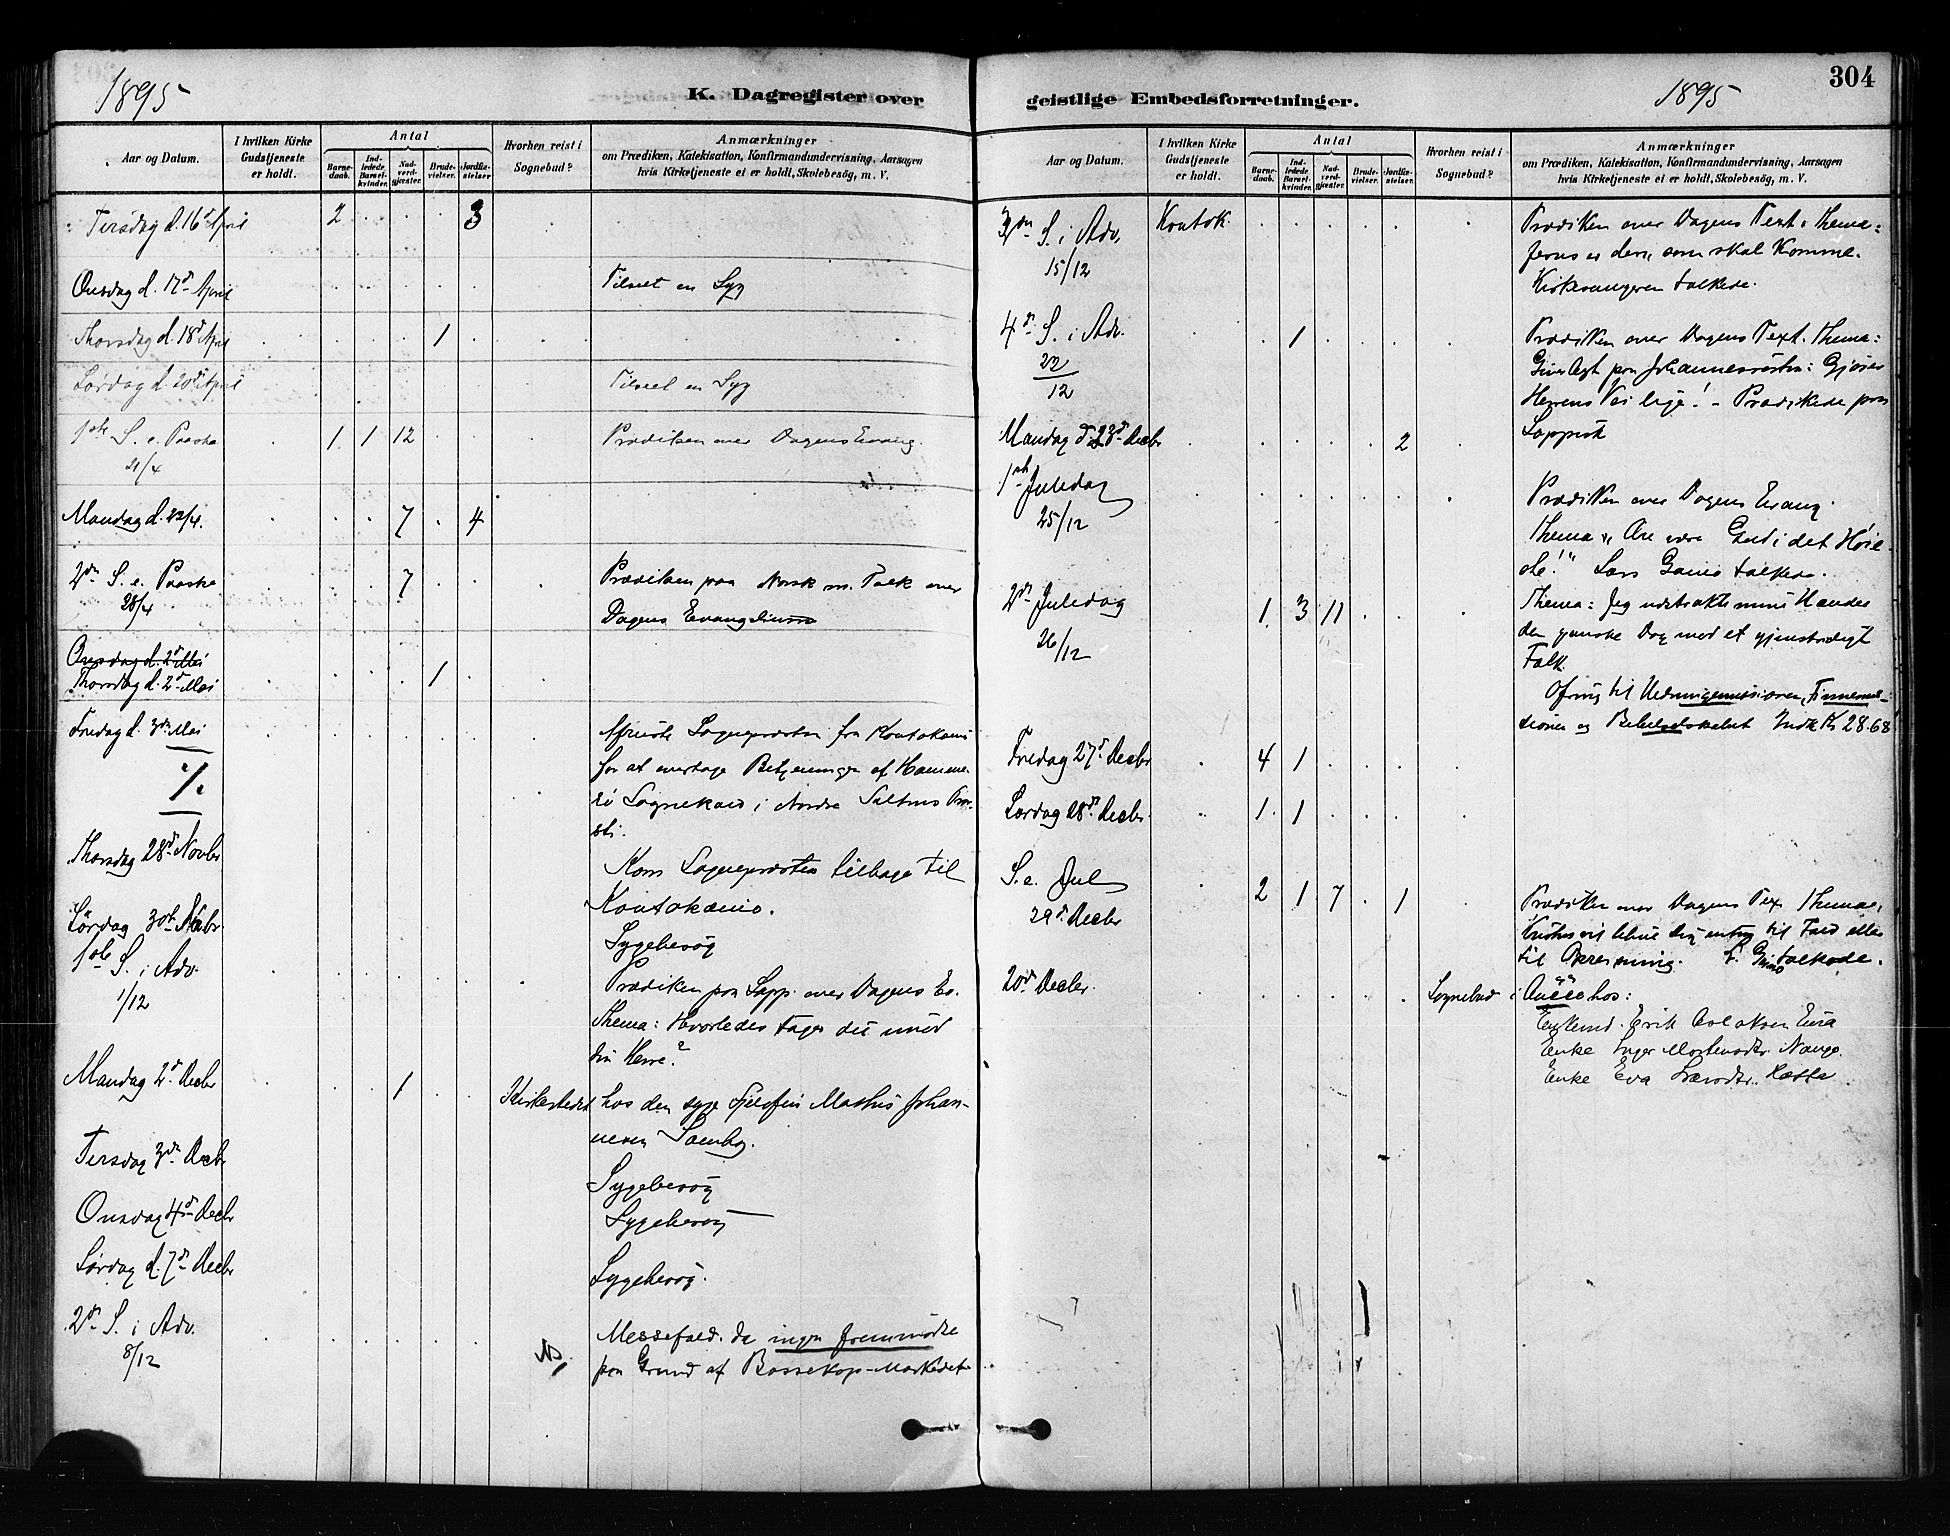 304
1895
K. Dagregister over
Aar og Datum.
I hvilken Kirke Gudstjeneste er holdt.
Antal
Barnedaab.
Indledede Barselkvinder.
Nadverdgjæster.
Brudevielser.
Jordfæstelser
Hvorhen reist i Sognebud?
Anmærkninger
om Prædiken, Katekisation, Konfirmandundervisning, Aarsagen
hvis Kirketjeneste ei er holdt, Skolebesög, m. V.
Tirsdag d. 16d April 2 3
Onsdag d. 17d April Tilseet en Syg
Thorsdag d. 18d April 1
Lørdag d. 20d April Tilseet en Syg
1ste S. e. Paaske 1 1 12 Prædiken over Dagens Evang.
21/4
Mandag d. 22/4. 7 4
2den S. e. Paaske 7 Prædiken paa Norsk m. Tolk over
28/4 Dagens Evangelium
Onsdag d. 2d Mai
Thorsdag d. 2d Mai 1
Fredag d. 3die Mai Afreiste Sognepresten fra Kautokeino
for at overtage Betjeningen af Hamme-
rö Sognekald i Nordre Saltens Prov-
sti.
Thorsdag 28d Novbr Kom Sognepræsten tilbage til
Kautokeino.
Lørdag 30te Novbr. Sygebesøg
1ste S. i Adv. Prædiken paa Lapp. over Dagens Ev.
1/12 Thema: Hvorledes tager du imod
din Herre?
Mandag 2d Decbr 1 Kirkestedet hos den syge Fjeldfin Mathis Johan-
nesen
Tirsdag 3die Decbr Sygebesøg
Onsdag 4d Decbr Sygebesøg
Lørdag d. 7d Decbr Sygebesøg.
2den S. i Adv. Messefald. da ingen fremmødte
8/12 paa Grund af Bossekop-Markedet
geistlige Embedsforretninger.
1895
Aar og Datum.
I hvilken Kirke Gudstjeneste er holdt.
Antal
Barnedaab.
Indledede Barselkvinder.
Nadverdgjæster.
Brudevielser.
Jordfæstelser.
Hvorhen reist i Sognebud?
Anmærkninger
om Prædiken, Katekisation, Konfirmandundervisning, Aarsagen
hvis Kirketjeneste ei er holdt, Skolebesög, m. V.
S. i Adv. Kautok. Prædiken over Dagens Text. Thema:
15/12 Jesus er den, som skal komme.
Kirkesangeren talkede.
4d S. i Adv. 1 Prædiken over Dagens Text. Thema:
22/12 Giver Agt paa Johannesrösten: Gjører
Herrens Vei lige! - Prædikede paa
Lappisk
Mandag d. 23d Decbr 2
1ste Juledag Prædiken over Dagens Evang.
25/12 Thema „Ære være Gud i det Høie-
ste!" Lars talkede.
2den Juledag 1 3 11 Thema: Jeg udstrakte mine Hænder
26/12 den ganske Dag mod et gjenstridigt
Folk.
Ofring til Hedningemissionen, Finnemis-
sionen og Bibelselskabet Indk Kr 28.68
Fredag 27d Decbr 4 1
Lørdag 28d Decbr. 1 1
S. e. Jul 2 1 7 1 Prædiken over Dagens Text Thema:
29d Decbr Kristus vil blive dig enten til Fald eller
til Opreisning. L. talkede.
20d Decbr. Sognebud i hos:
Erik
Enke Inger Mortensdtr.
Enke Eva Hætta